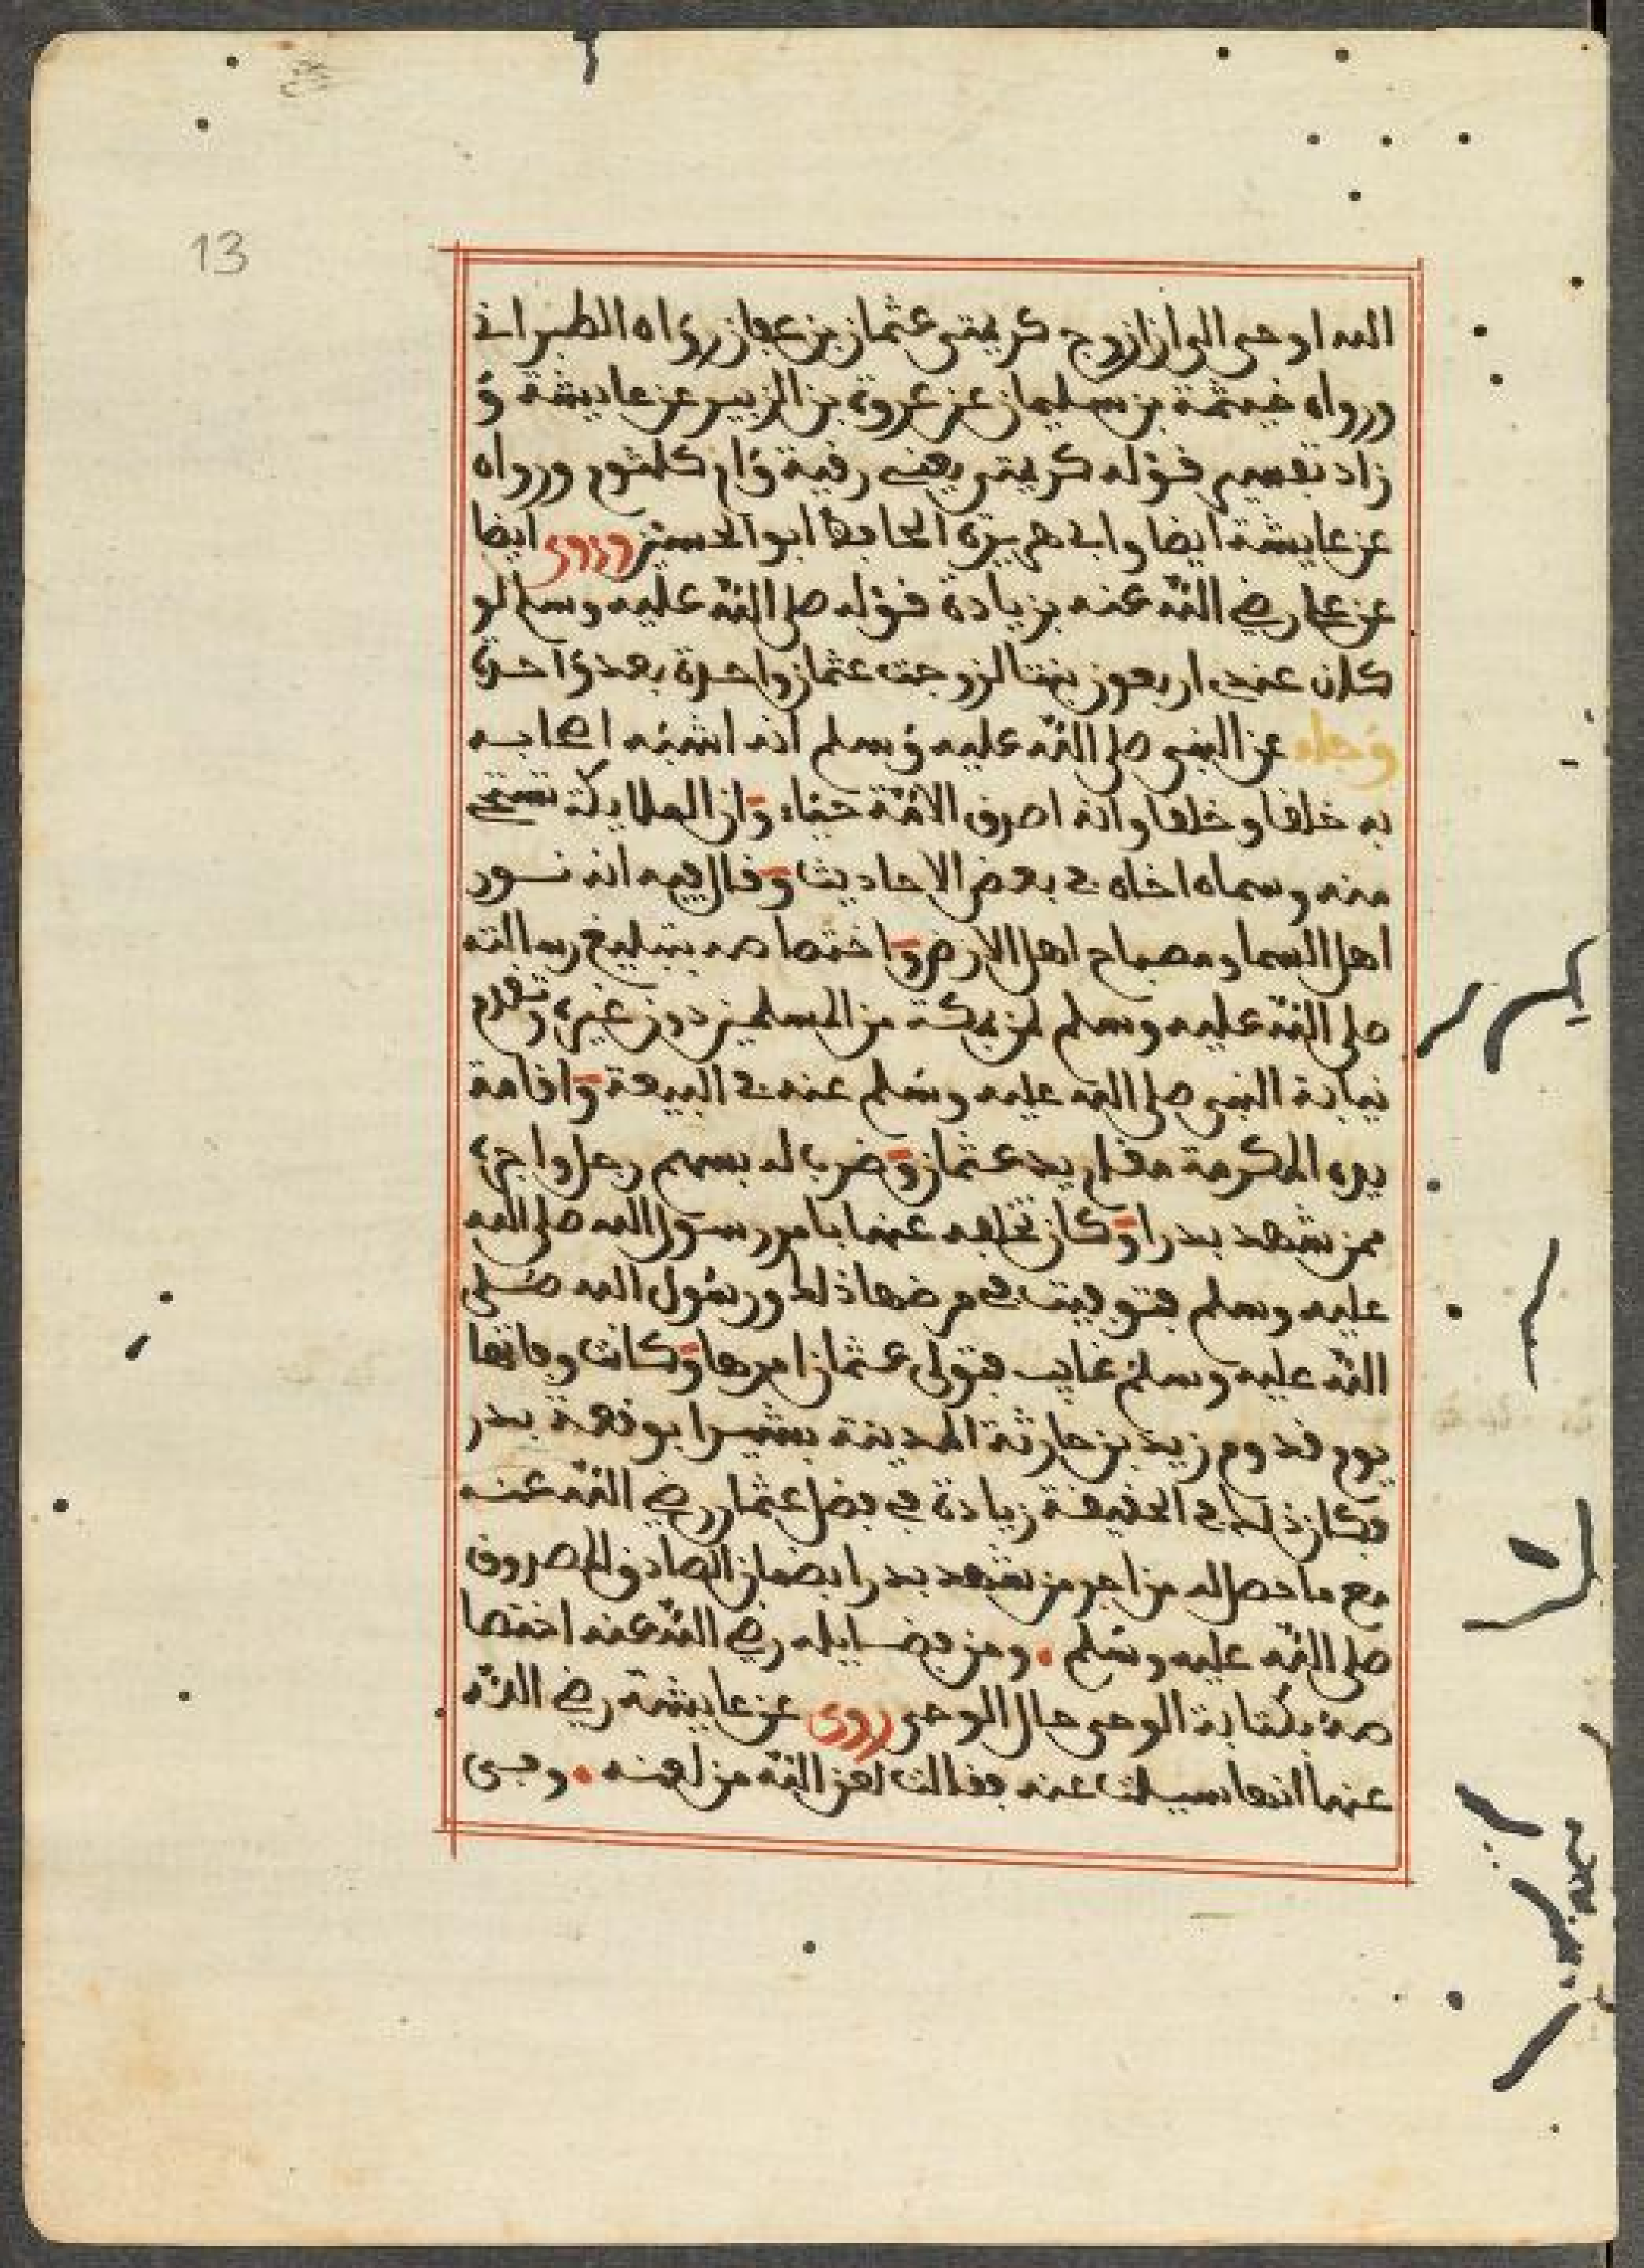 13
الله اوحى الي ان ازوج كريمتي عثمان بن عفان رواه الطبراني
ورواه خيثمة بن سليمان عن عروة بن الزبير عن عايشة و
زاد تفسير قوله كريمتي يعني رقية وام كلثوم ورواه
عن عايشة ايضا وابي هريرة الحافظ ابو الحسين وروى ايضا
عن علي رضي الله عنه بزيادة قوله صلى الله عليه وسلم لو
كان عندي اربعون بنتا لزوجت عثمان واحدة بعد واحدة
وجاء عن النبي صلى الله عليه وسلم انه اشبه اصحابه
به خلقا وخلقا وانه اصدق الامة حياء وان الملايكة تستحي
منه وسماه اخاه في بعض الاحاديث وقال فيه انه نور
اهل السما ومصباح اهل الارض واختصاصه بتبليغ رسالته
صلى الله عليه وسلم لمن بمكة من المسلمين دون غيره وتقدم
نيابة النبي صلى الله عليه وسلم عنه في البيعة واقامة
يده المكرمة مقام يد عثمان وضرب له بسهم رجل واجره
ممن شهد بدرا وكان تخلفه عنها بامر رسول الله صلى الله
عليه وسلم فتوفيت في مرضها ذلك ورسول الله صلى
الله عليه وسلم غايب فتولى عثمان امرها وكانت وفاتها
يوم قدوم زيد بن حارثة المدينة بشيرا بوقعة بدر
فكان ذلك في الحقيقة زيادة في فضل عثمان رضي الله عنه
مع ما حصل له من اجر من شهد بدرا بضمان الصادق المصدوق
صلى الله عليه وسلم . ومن فضايله رضي الله عنه اختصا
صه بكتابة الوحي حال الوحي روى عن عايشة رضي الله
عنها انها سيلت عنه فقالت لعن الله من لعنه .